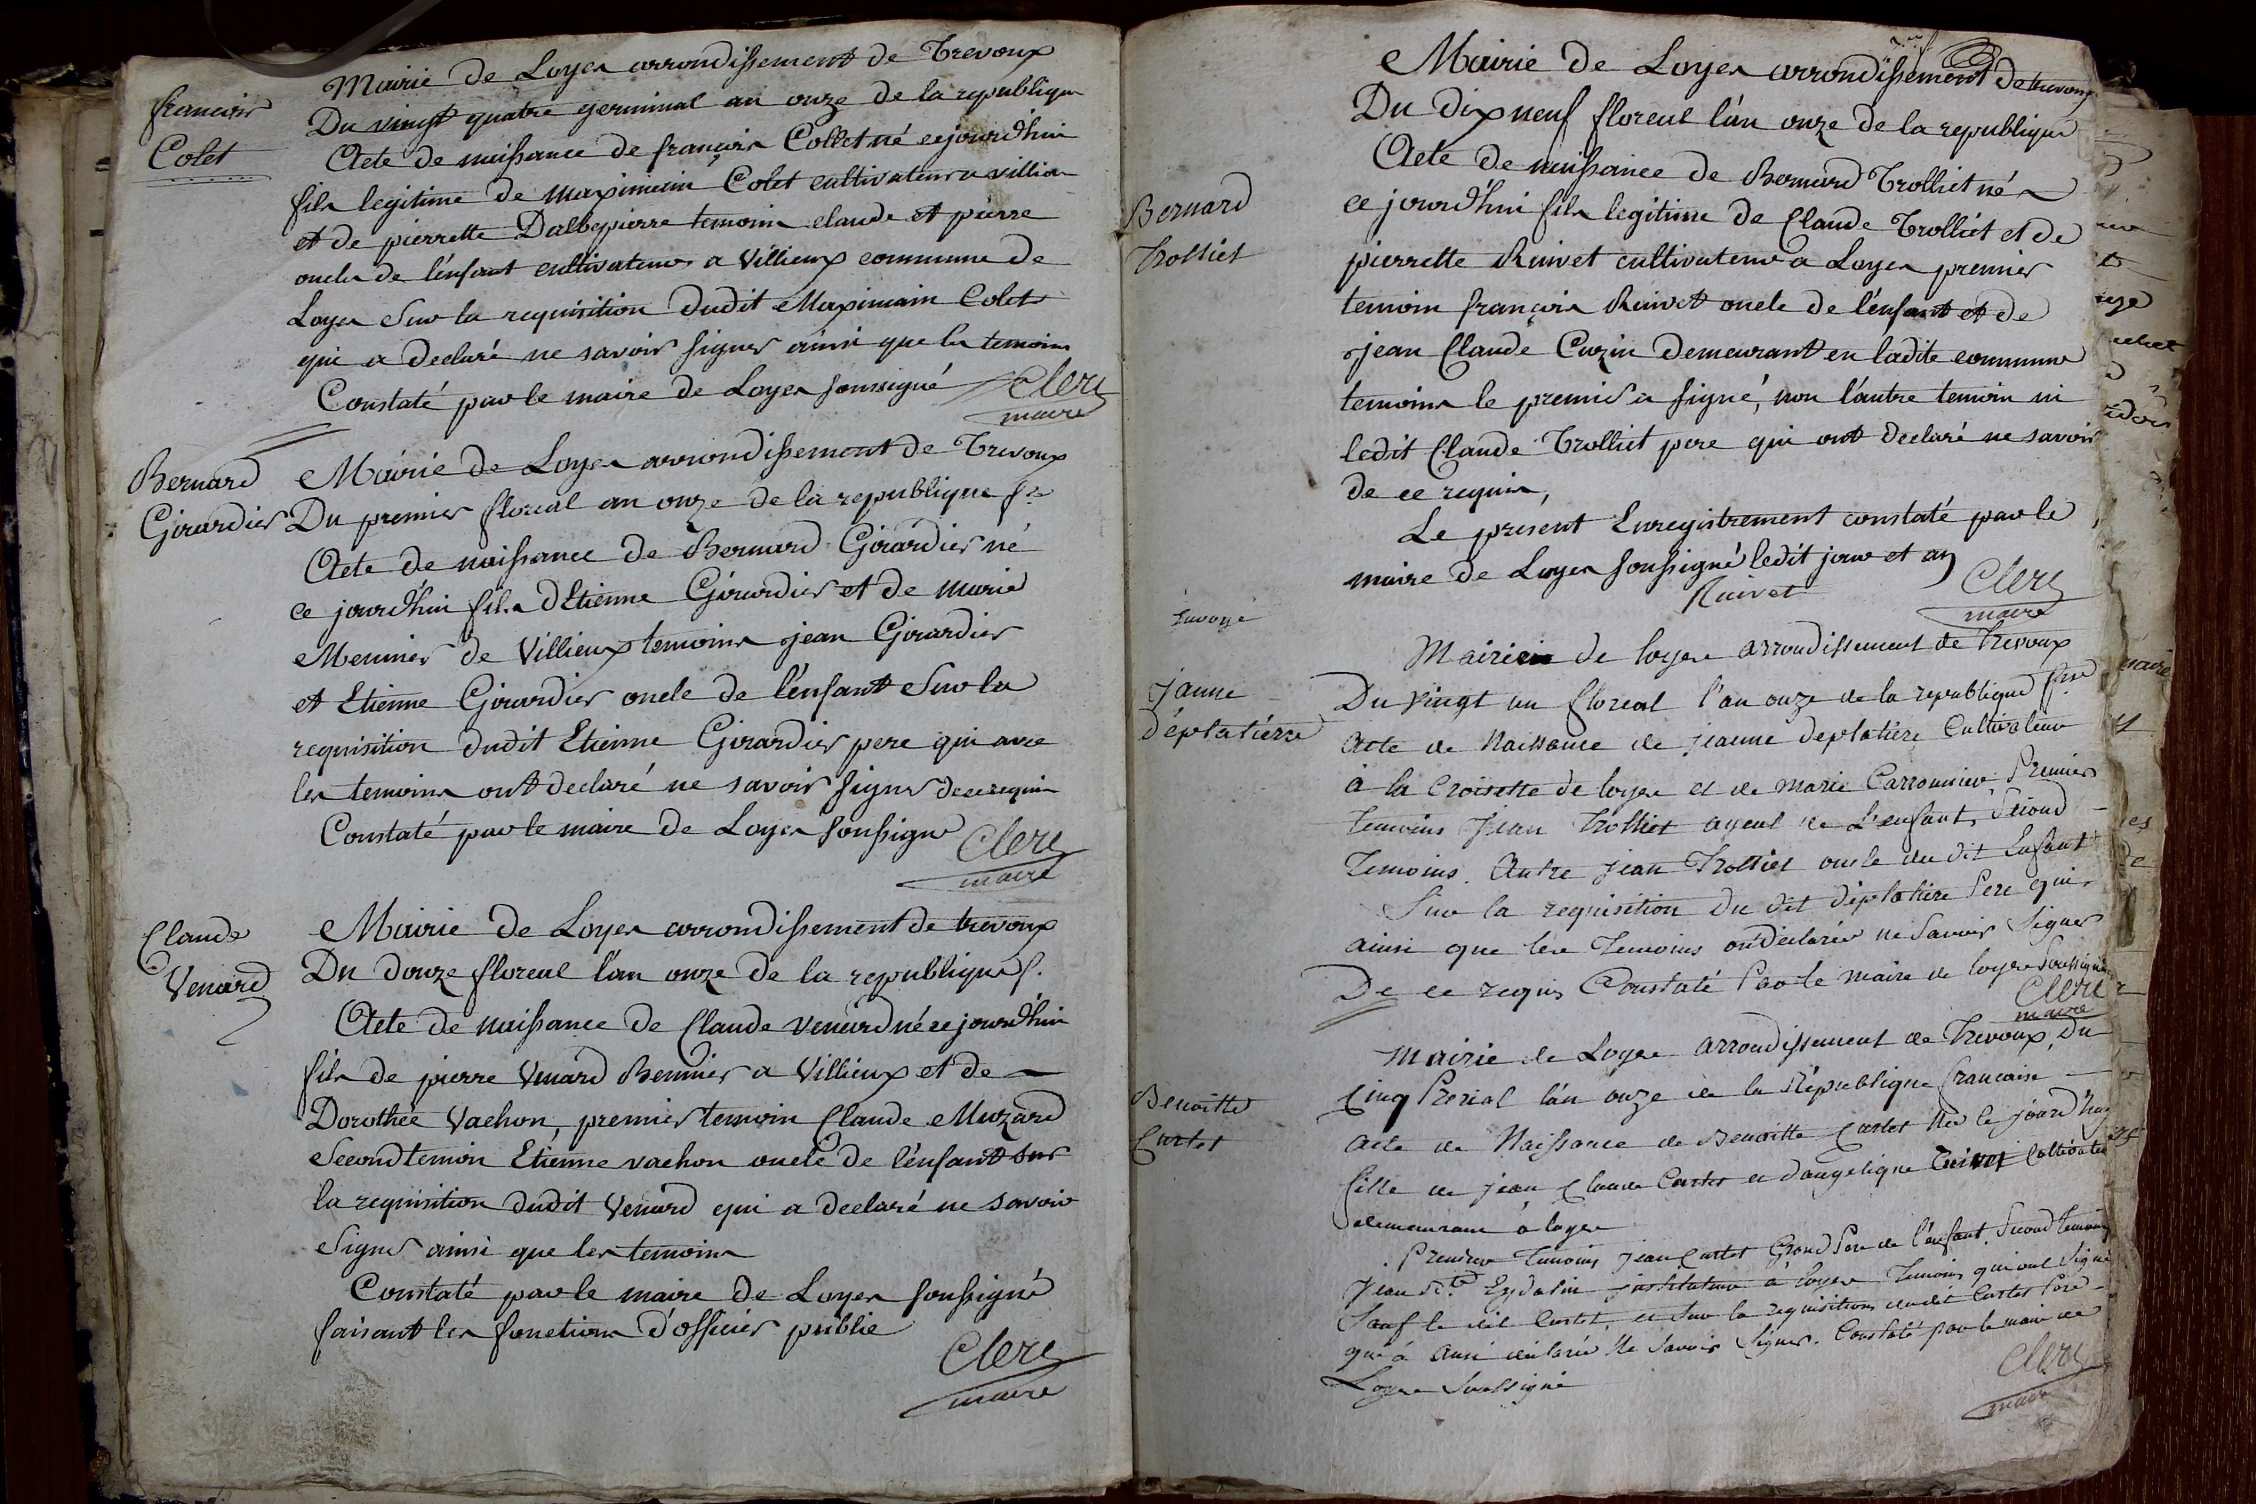 françois
Colet
Mairie de Loyes arrondissement de Trevoux
Du vingt quatre germinal an onze de la republique
Acte de naissance de françois Collet né cejourdhui
fils legitime de maximin Colet cultivateur a villieu
et de pierrette Dalbepierre temoins claude et pierre
oncles de l'enfant cultivateurs a Villieux commune de
Loyes Sur la requisition dudit Maximin Colet
qui a declaré ne savoir signer ainsi que les temoins
Constaté par le maire de Loyes soussigné
Clerc
maire
Bernard
Girardier
Mairie de Loyes arrondissement de Trevoux
Du premier floreal an onze de la republique fse
Acte de naissance de Bernard Girardier né
ce jourdhui fils dEtienne Girardier et de Marie
Meunier de Villieux temoins jean Girardier
et Etienne Girardier oncle de l'enfant Sur la
requisition dudit Etienne Girardier pere qui avec
les temoins ont declaré ne savoir signer de ce requis
Constaté par le maire de Loyes soussigné
Clerc
maire
Claude
Venard
Mairie de Loyes arrondissement de trevoux
Du douze floreal l'an onze de la republique f.
Acte de naissance de Claude Venard né ce jourdhui
fils de pierre Venard a Villieux et de
Dorothée Vachon, premier temoin Claude Muzard
Second temoin Etienne vachon oncle de l'enfant sur
la requisition dudit Venard qui a declaré ne savoir
Signer ainsi que les temoins
Constaté par le maire de Loyes soussigné
faisant les fonctions d'officier public
Clerc
maire
Mairie de Loyes arrondissement de trevoux
Du dix neuf floreal l'an onze de la republique
Bernard
Trolliet
Acte de naissance de Bernard Trolliet né
ce jourdhui fils legitime de Claude Trolliet et de
pierrette Ruivet cultivateur a Loyes premier
temoin françois Ruivet oncle de l'enfant et de
jean Claude Cuzin demeurant en ladite commune
temoins le premier a signé, non l'autre temoin ni
ledit Claude Trolliet pere qui ont declaré ne savoir
de ce requis,
Le present Enregistrement constaté par le
maire de Loyes soussigné ledit jour et an
Ruivet
Clerc
maire
Envoyé
Mairie de loyes arrondissement de Trevoux
Jeanne
déplatière
Du vingt un floreal l'an onze de la republique fse
Acte de Naissance de jeanne deplatière Cultivateur
à la Croisette de loyes et de marie Carronnier, Premier
temoins jean Trolliet ayeul de L'enfant, Second
Temoins. Autre jean Trolliet oncle du dit Enfant
Sur la requisition du dit déplatière Pere qui
ainsi que les Temoins on déclarée ne Savoir Signer
De ce requis Constaté Par le maire de loyes Soussigné
Clerc
maire
Mairie de Loyes arrondissement de Trevoux, Du
Benoitte
Curtet
Cinq Prerial l'án onze de la République francaise
acte de Naissance de Benoitte Curtet Née le jourd'huy
fille de jean Claude Curtet et d'angelique Cultivateur
demeurant à loyes
Premier Temoins jean Curtet Grand Pere de l'enfant, Second Temoins
jean Bte. Eydalin jnstituteur à loyes Temoins qui ont Signé
Sauf le dit Curtet, et Sur la requisitions dudit Curtet Pere
qui à Ausi déclarée Ne Savoir Signer. Constaté par le maire de
Loyes Soussigné
Clerc
maire